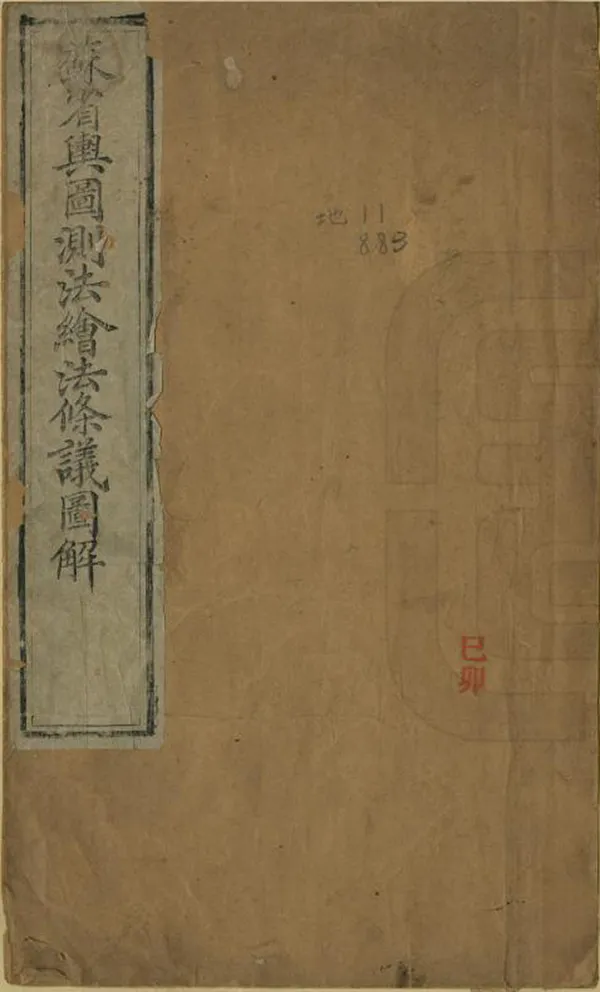 蘇省輿圖測法繪法條議圖解
地 11
883
巳卯